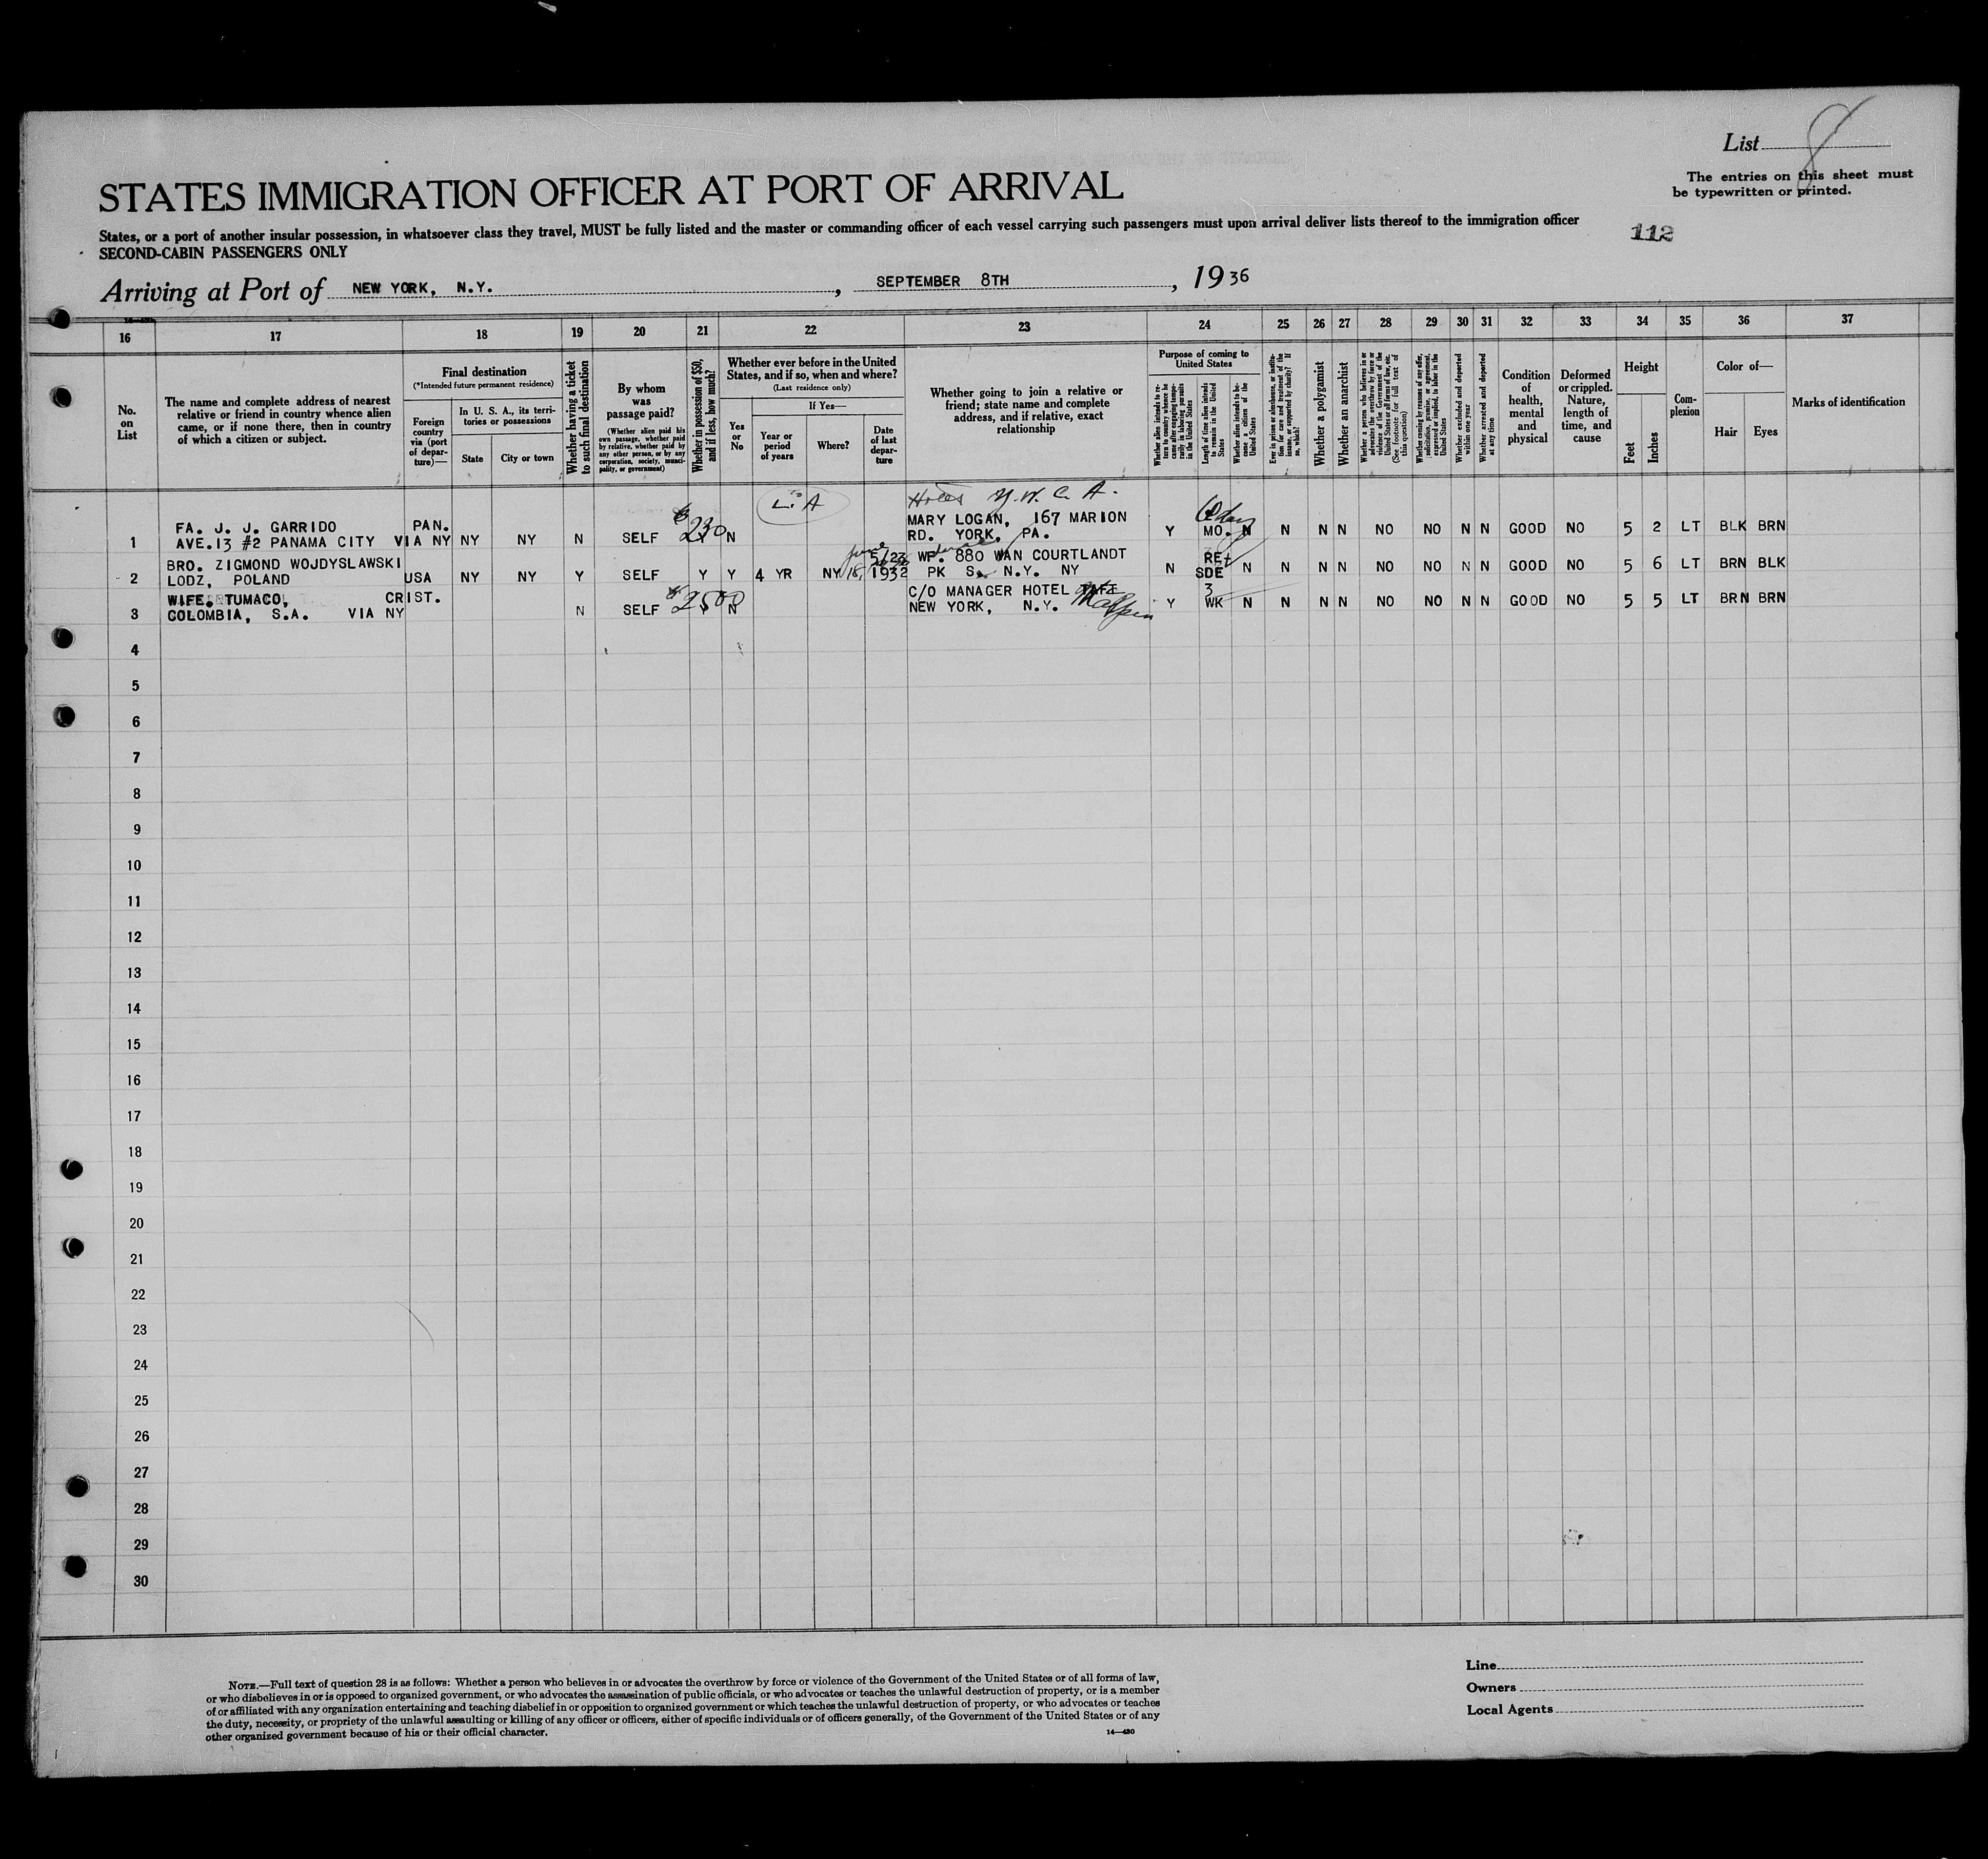 List 8
The entries on this sheet must
be typewritten or printed.
STATES IMMIGRATION OFFICER AT PORT OF ARRIVAL
States, or a port of another insular possession, in whatsoever class they travel, MUST be fully listed and the master or commanding officer of each vessel carrying such passengers must upon arrival deliver lists thereof to the immigration officer
SECOND-CABIN PASSENGERS ONLY
112
Arriving at Port of NEW YORK, N.Y. , SEPTEMBER 8TH , 1936
16 17 18 19 20 21 22 23 24 25 26 27 28 29 30 31 32 33 34 35 36 37
No. on List
The name and complete address of nearest
relative or friend in country whence alien
came, or if none there, then in country
of which a citizen or subject.
Final destination
(*Intended future permanent residence)
Foreign country via (port of departure)—
In U. S. A., its territories or possessions
State
City or town
Whether having a ticket to such final destination
By whom was passage paid?
(Whether alien paid his own passage, whether paid by relative, whether paid by any other person, or by any corporation, society, municipality, or government)
Whether in possession of $50, and if less, how much?
Whether ever before in the United
States, and if so, when and where?
(Last residence only)
Yes or No
If Yes—
Year or period of years
Where?
Date of last departure
Whether going to join a relative or
friend; state name and complete
address, and if relative, exact
relationship
Purpose of coming to
United States
Whether alien intends to return to country whence he came after engaging temporarily in laboring pursuits in the United States
Length of time alien intends to remain in the United States
Whether alien intends to become a citizen of the United States
Ever in prison or almshouse, or institution for care and treatment of the insane, or supported by charity? If so, which?
Whether a polygamist
Whether an anarchist
Whether a person who believes in or advocates the overthrow by force or violence of the Government of the United States or all forms of law, etc. (See footnote for full text of this question)
Whether coming by reasons of any offer, solicitation, promise, or agreement, expressed or implied, to labor in the United States
Whether excluded and deported within one year
Whether arrested and deported at any time
Condition of health, mental and physical
Deformed or crippled. Nature, length of time, and cause
Height
Feet
Inches
Complexion
Color of—
Hair
Eyes
Marks of identification
Y. W. C. A.
FA. J. J. GARRIDO PAN. $230 MARY LOGAN, 167 MARION
1 AVE.13 #2 PANAMA CITY VIA NY NY NY N SELF Y N RD. YORK, PA. Y MO. N N N N NO NO N N GOOD NO 5 2 LT BLK BRN
BRO. ZIGMOND WOJDYSLAWSKI June 5/23 WP. 880 WAN COURTLANDT RE
2 LODZ, POLAND USA NY NY Y SELF Y Y 4 YR NY 18, 1932 PK S. N.Y. NY N SDE N N N N NO NO N N GOOD NO 5 6 LT BRN BLK
WIFE. TUMACO, CRIST. $2500 C/O MANAGER HOTEL 3
3 COLOMBIA, S.A. VIA NY N SELF Y N NEW YORK, N.Y. Y WK N N N N NO NO N N GOOD NO 5 5 LT BRN BRN
4
5
6
7
8
9
10
11
12
13
14
15
16
17
18
19
20
21
22
23
24
25
26
27
28
29
30
NOTE.—Full text of question 28 is as follows: Whether a person who believes in or advocates the overthrow by force or violence of the Government of the United States or of all forms of law,
or who disbelieves in or is opposed to organized government, or who advocates the assassination of public officials, or who advocates or teaches the unlawful destruction of property, or is a member
of or affiliated with any organization entertaining and teaching disbelief in or opposition to organized government or which teaches the unlawful destruction of property, or who advocates or teaches
the duty, necessity, or propriety of the unlawful assaulting or killing of any officer or officers, either of specific individuals or of officers generally, of the Government of the United States or of any
other organized government because of his or their official character.
14—430
Line
Owners
Local Agents